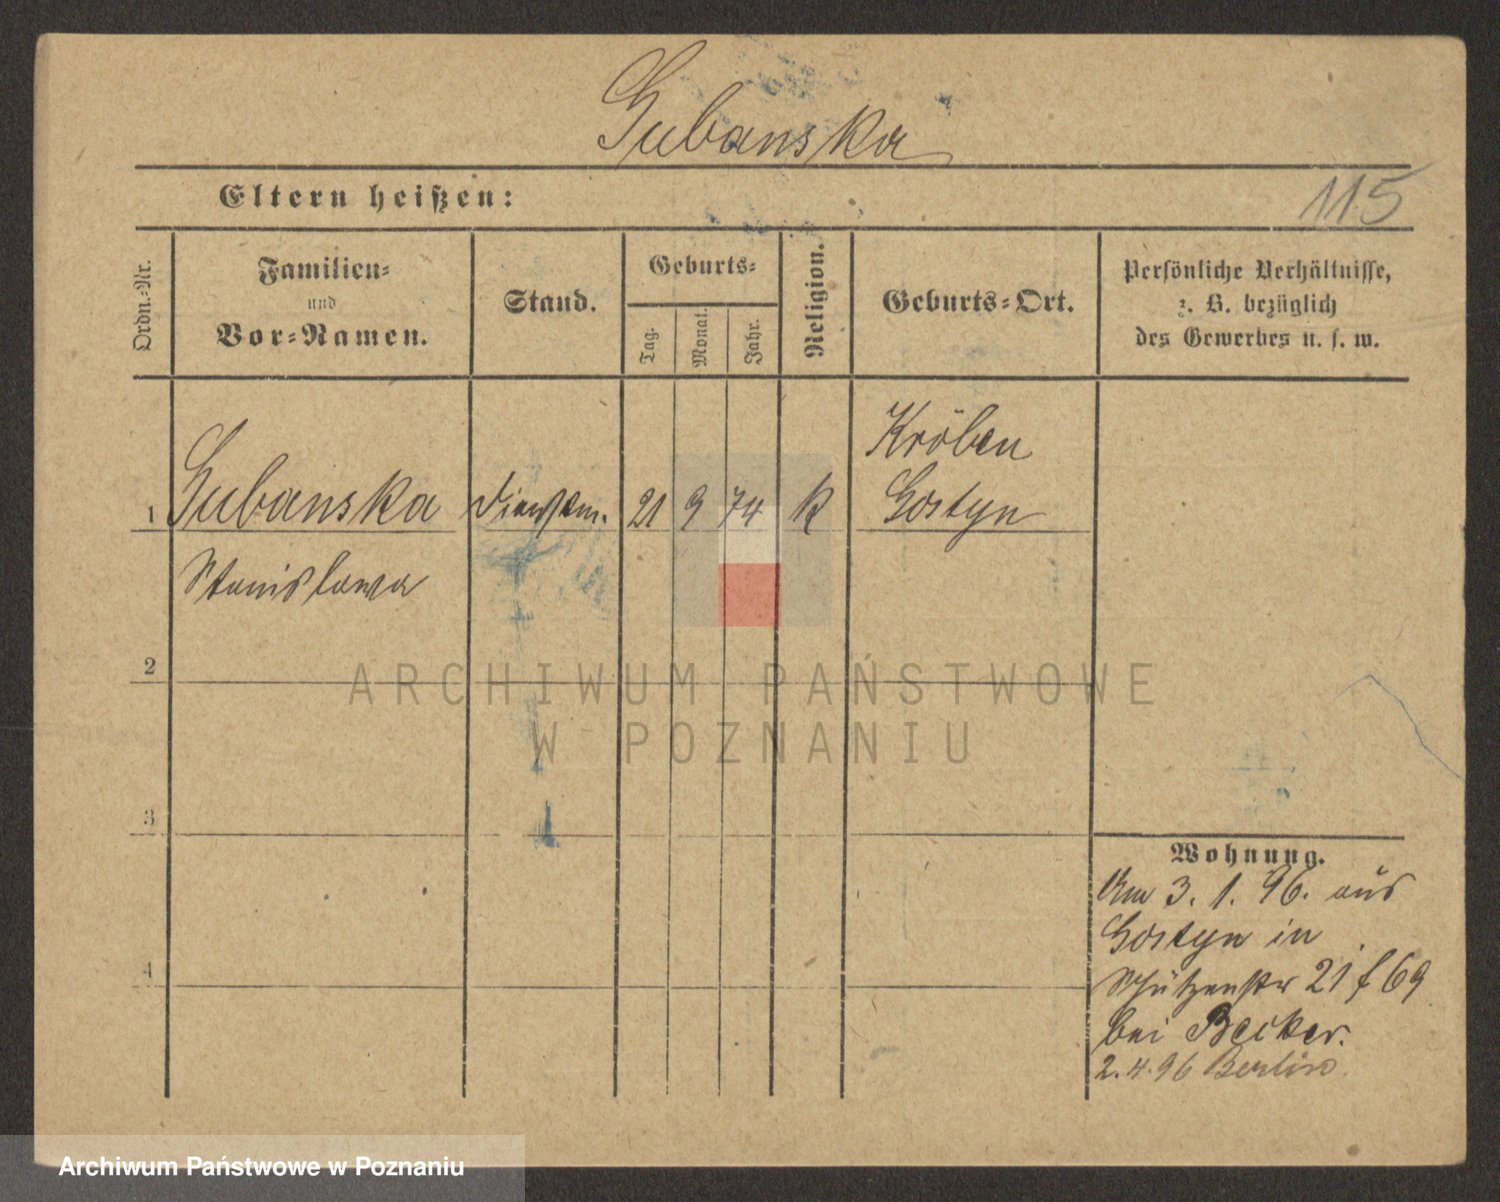 Gubanska
Eltern heißen:
115
Ordn.-Nr.
Familien-
und
Vor-Namen.
Stand.
Geburts-
Tag.
Monat.
Jahr.
Religion.
Geburts-Ort.
Persönliche Verhältnisse,
z. B. bezüglich
des Gewerbes u. s. w.
Kröben
1 Gubanska Dienstm. 21 9 74 K Gostyn
Stanislawa
2
ARCHIWUM PAŃSTWOWE
W POZNANIU
3
Wohnung.
Am 3. 1. 96. aus
Gostyn in
4
Schützenstr 21 f 69
bei Becker.
2.4.96 Berlin.
Archiwum Państwowe w Poznaniu